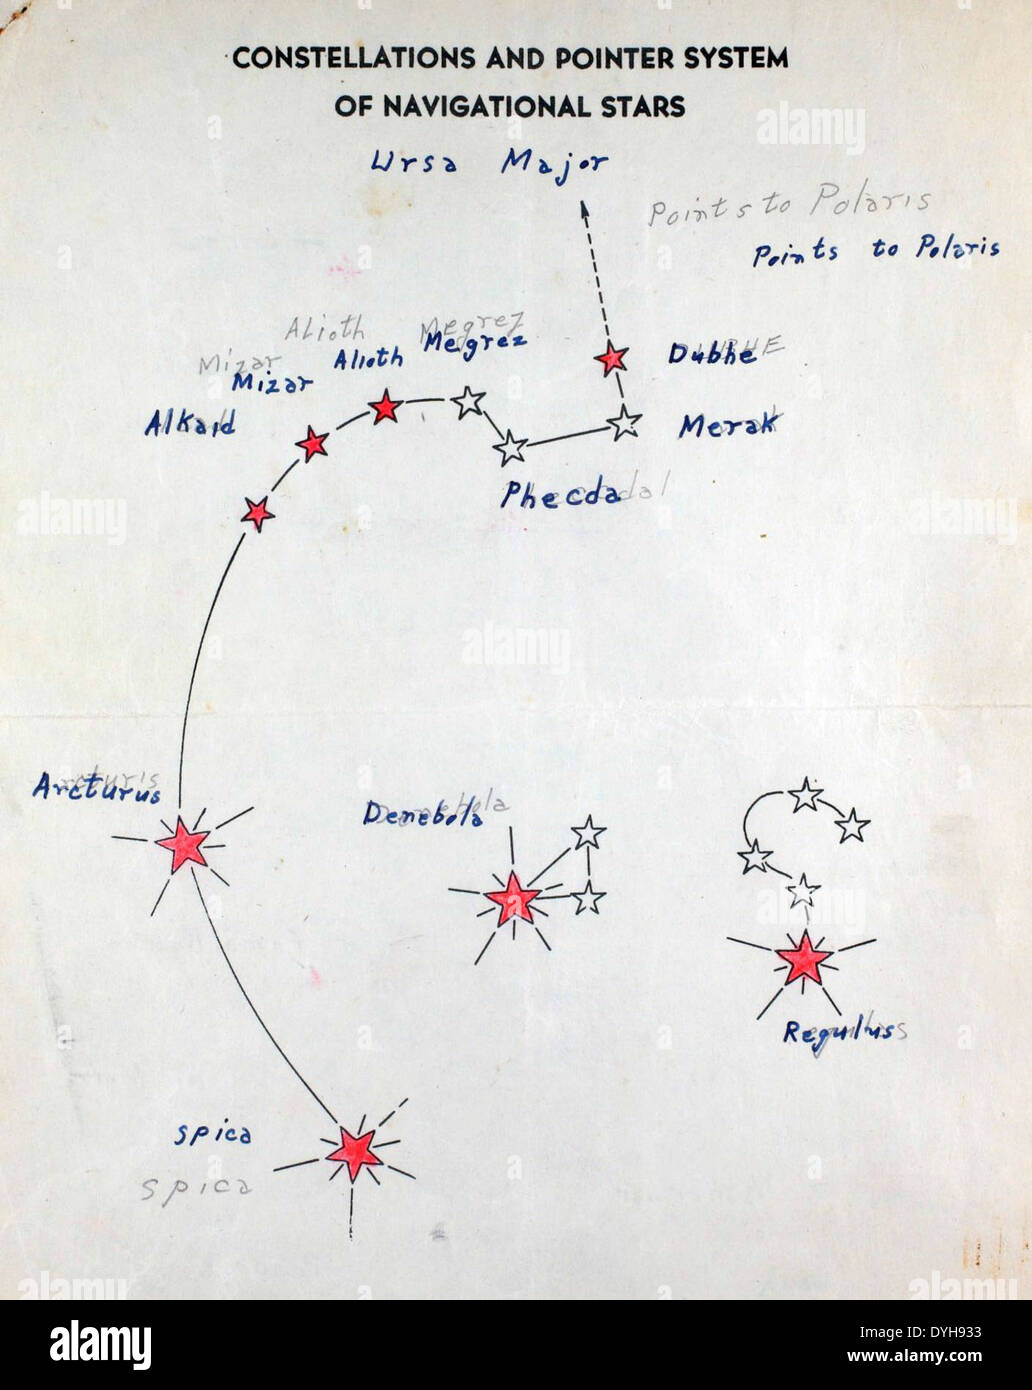 CONSTELLATIONS AND POINTER SYSTEM
OF NAVIGATIONAL STARS
Ursa Major
Points to Polaris
Points to Polaris
Alioth
Megrez
Megrez
Mizar
Alioth
Mizar
Dubhe
Alkaid
Merak
Phecda
Arcturus
Denebola
Regulus
Spica
Spica
a
alamy
alamy
Image ID: DYH933
www.alamy.com